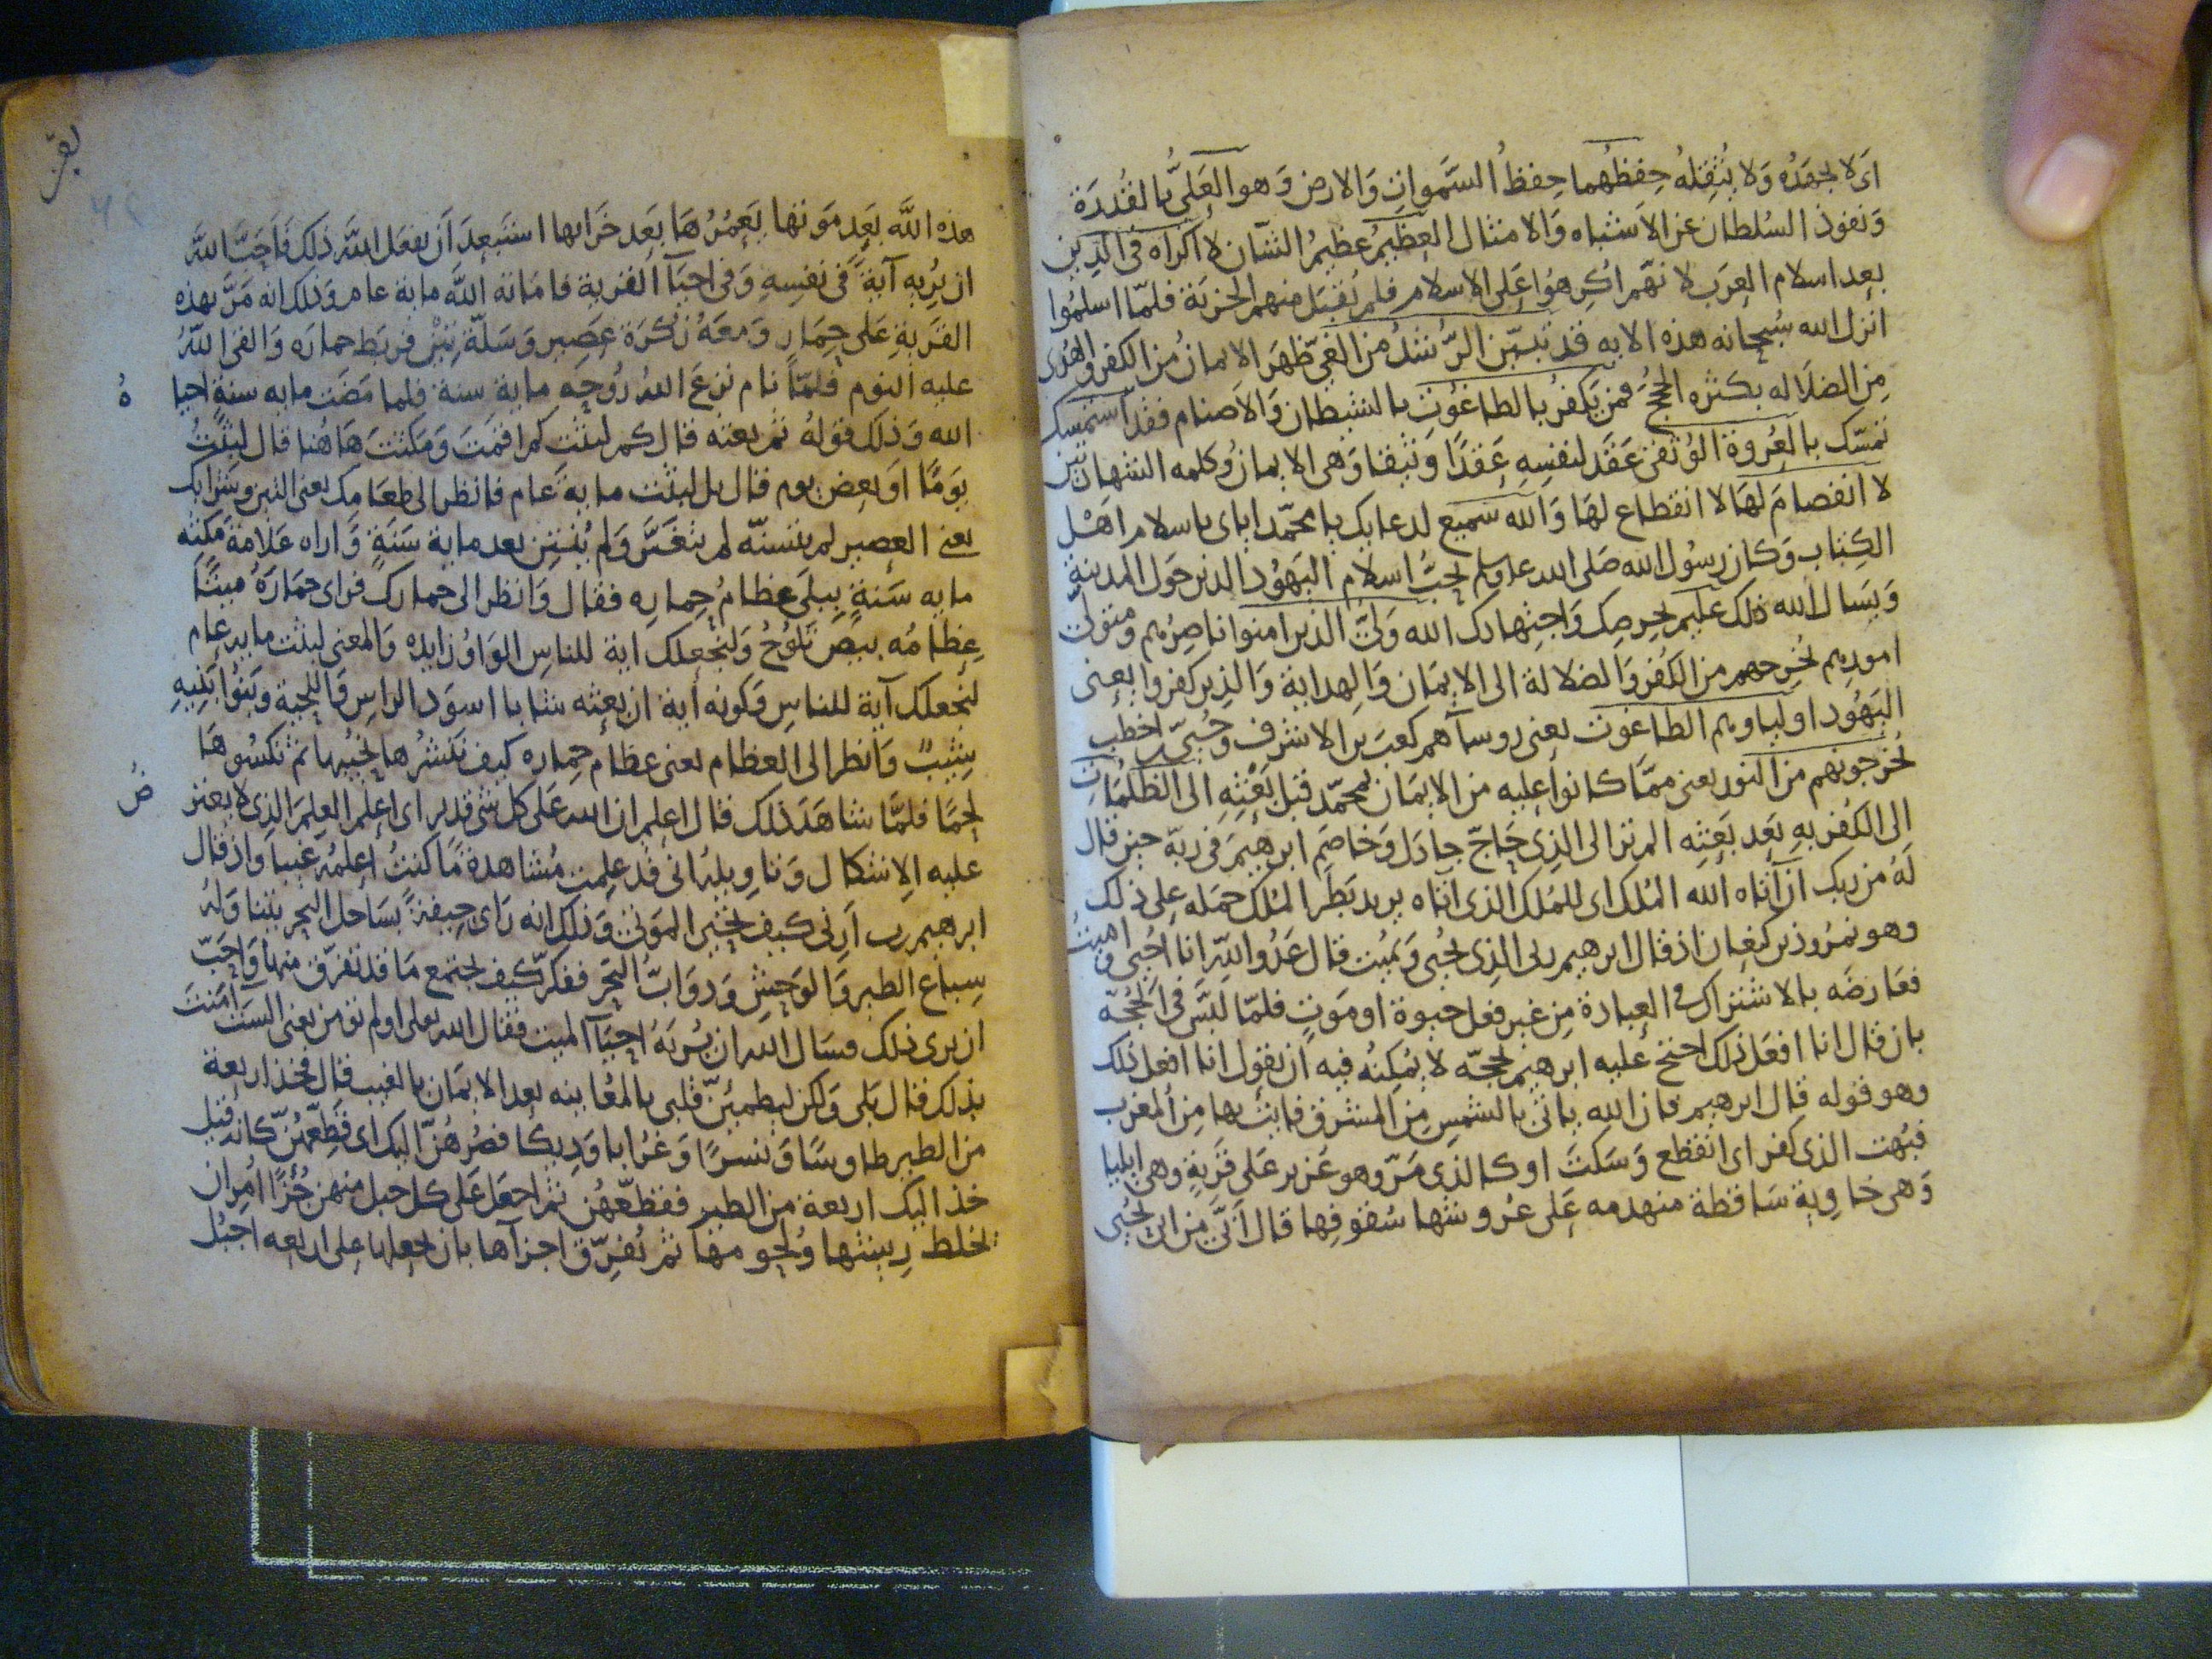 اى لا يجهده ولا يثقله حفظهما حفظ السموات والارض وهو العلى بالقدرة
ونفوذ السلطان عن الاشباه والامثال العظيم عظيم الشان لا اكراه فى الدين
بعد اسلام العرب لانهم اكرهوا على الاسلام فلم يقبل منهم الجزية فلما اسلموا
انزل الله سبحانه هذه الايه قد تبين الرشد من الغى ظهر الايمان من الكفر والهدى
من الضلاله بكثره الحجج فمن يكفر بالطاغوت بالشيطان والاصنام فقد استمسك
تمسك بالعروة الوثقى عقد لنفسه عقدا وثيقا وهى الايمان وكلمه الشهادتين
لا انفصام لها لا انقطاع لها والله سميع لدعايك يا محمد اياى باسلام اهل
الكتاب وكان رسول الله صلى الله عليه وسلم يحب اسلام اليهود الذين حول المدينة
ويسال الله ذلك عليم بحرصك واجتهادك الله ولى الذين امنوا ناصرهم ومتولى
امورهم يخرجهم من الكفر والضلالة الى الايمان والهداية والذين كفروا يعنى
اليهود اولياوهم الطاغوت يعنى روساهم كعب بن الاشرف وحيى بن اخطب
يخرجونهم من النور يعنى مما كانوا عليه من الايمان بمحمد قبل بعثه الى الظلمات
الى الكفر به بعد بعثه الم تر الى الذى حاج جادل وخاصم ابرهيم فى ربه حين قال
له من ربك ان آتاه الله الملك اى الملك الذى اتاه يريد بطر الملك حمله على ذلك
وهو نمروذ بن كنعان اذ قال ابرهيم ربى الذى يحيى ويميت قال عدو الله انا احيى واميت
فعارضه بالاشتراك فى العبادة من غير فعل حيوة او موت فلما لبس فى الحجة
بان قال انا افعل ذلك احتج عليه ابرهيم بحجه لا يمكنه فيه ان يقول انا افعل ذلك
وهو قوله قال ابرهيم فان الله ياتى بالشمس من المشرق فايت بها من المغرب
فبهت الذى كفر اى انقطع وسكت او كالذى مر وهو عزير على قرية وهى ايليا
وهى خاوية ساقطة منهدمه على عروشها سقوفها قال انى من اين يحيى
بقره
هذه الله بعد موتها يعمرها بعد خرابها استبعد ان يفعل الله ذلك فاحب الله
ان يريه آية فى نفسه وفى احيآ القرية فاماته الله ماية عام وذلك انه مر بهذه
القرية على حمار ومعه ركرة عصير وسلة تين فربط حماره والقى الله
عليه النوم فلما نام نزع الله روحه ماية سنة فلما مضت مايه سنة احياه
الله وذلك قوله ثم بعثه قال كم لبثت كم اقمت ومكثت هاهنا قال لبثت
يوما او بعض يوم قال بل لبثت ماية عام فانظر الى طعامك يعنى التين وشرابك
يعنى العصير لم يتسنه لم يتغير ولم ينتن بعد ماية سنة واراه علامة مكثه
مايه سنة ببلى عظام حماره فقال وانظر الى حمارك فراى حماره ميتا
عظامه بيض تلوح ولنجعلك اية للناس الواو زايده والمعنى لبثت مايه عام
لنجعلك آية للناس وكونه اية ان بعثه شابا اسود الراس واللحية وبنوا بنيه
شيب وانظر الى العظام يعنى عظام حماره كيف ننشرها نحييها ثم نكسوها
لحما فلما شاهد ذلك قال اعلم ان الله على كل شى قدير اى اعلم العلم الذى لا يعترض
عليه الاشكال وتاويله انى قد علمت مشاهدة ما كنت اعلمه غيبا واذ قال
ابرهيم رب ارنى كيف تحيى الموتى وذلك انه راى جيفة بساحل البحر يتناوله
سباع الطير والوحش ودواب البحر ففكر كيف يجتمع ما قد تفرق منها واحب
ان يرى ذلك فسال الله ان يريه احيآ الميت فقال الله تعلى اولم تومن يعنى الست امنت
بذلك قال بلى ولكن ليطمين قلبى بالمعاينه بعد الايمان بالغيب قال فخذ اربعة
من الطير طاوسا ونسرا وغرابا وديكا فصرهن اليك اى قطعهن كانه قيل
خذ اليك اربعة من الطير فقطعهن ثم اجعل على كل جبل منهن جزءا امر ان
يخلط ريشها ولحومها ثم يفرق اجزآها بان يجعلها على اربعه اجبل